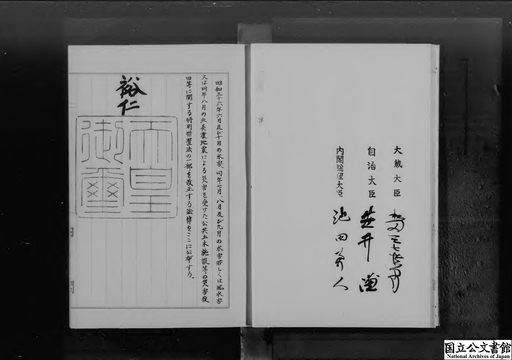 昭和三十六年六月及び十月の水害、同年七月、八月及び九月の水害若しくは風水害
又は同年八月の北美濃地震による災害を受けた公共土木施設等の災害復
旧等に関する特別措置法の一部を改正する法律をここに公布する。
裕仁
天皇
御璽
大蔵大臣
自治大臣
内閣総理大臣 池田勇人
国立公文書館
National Archives of Japan